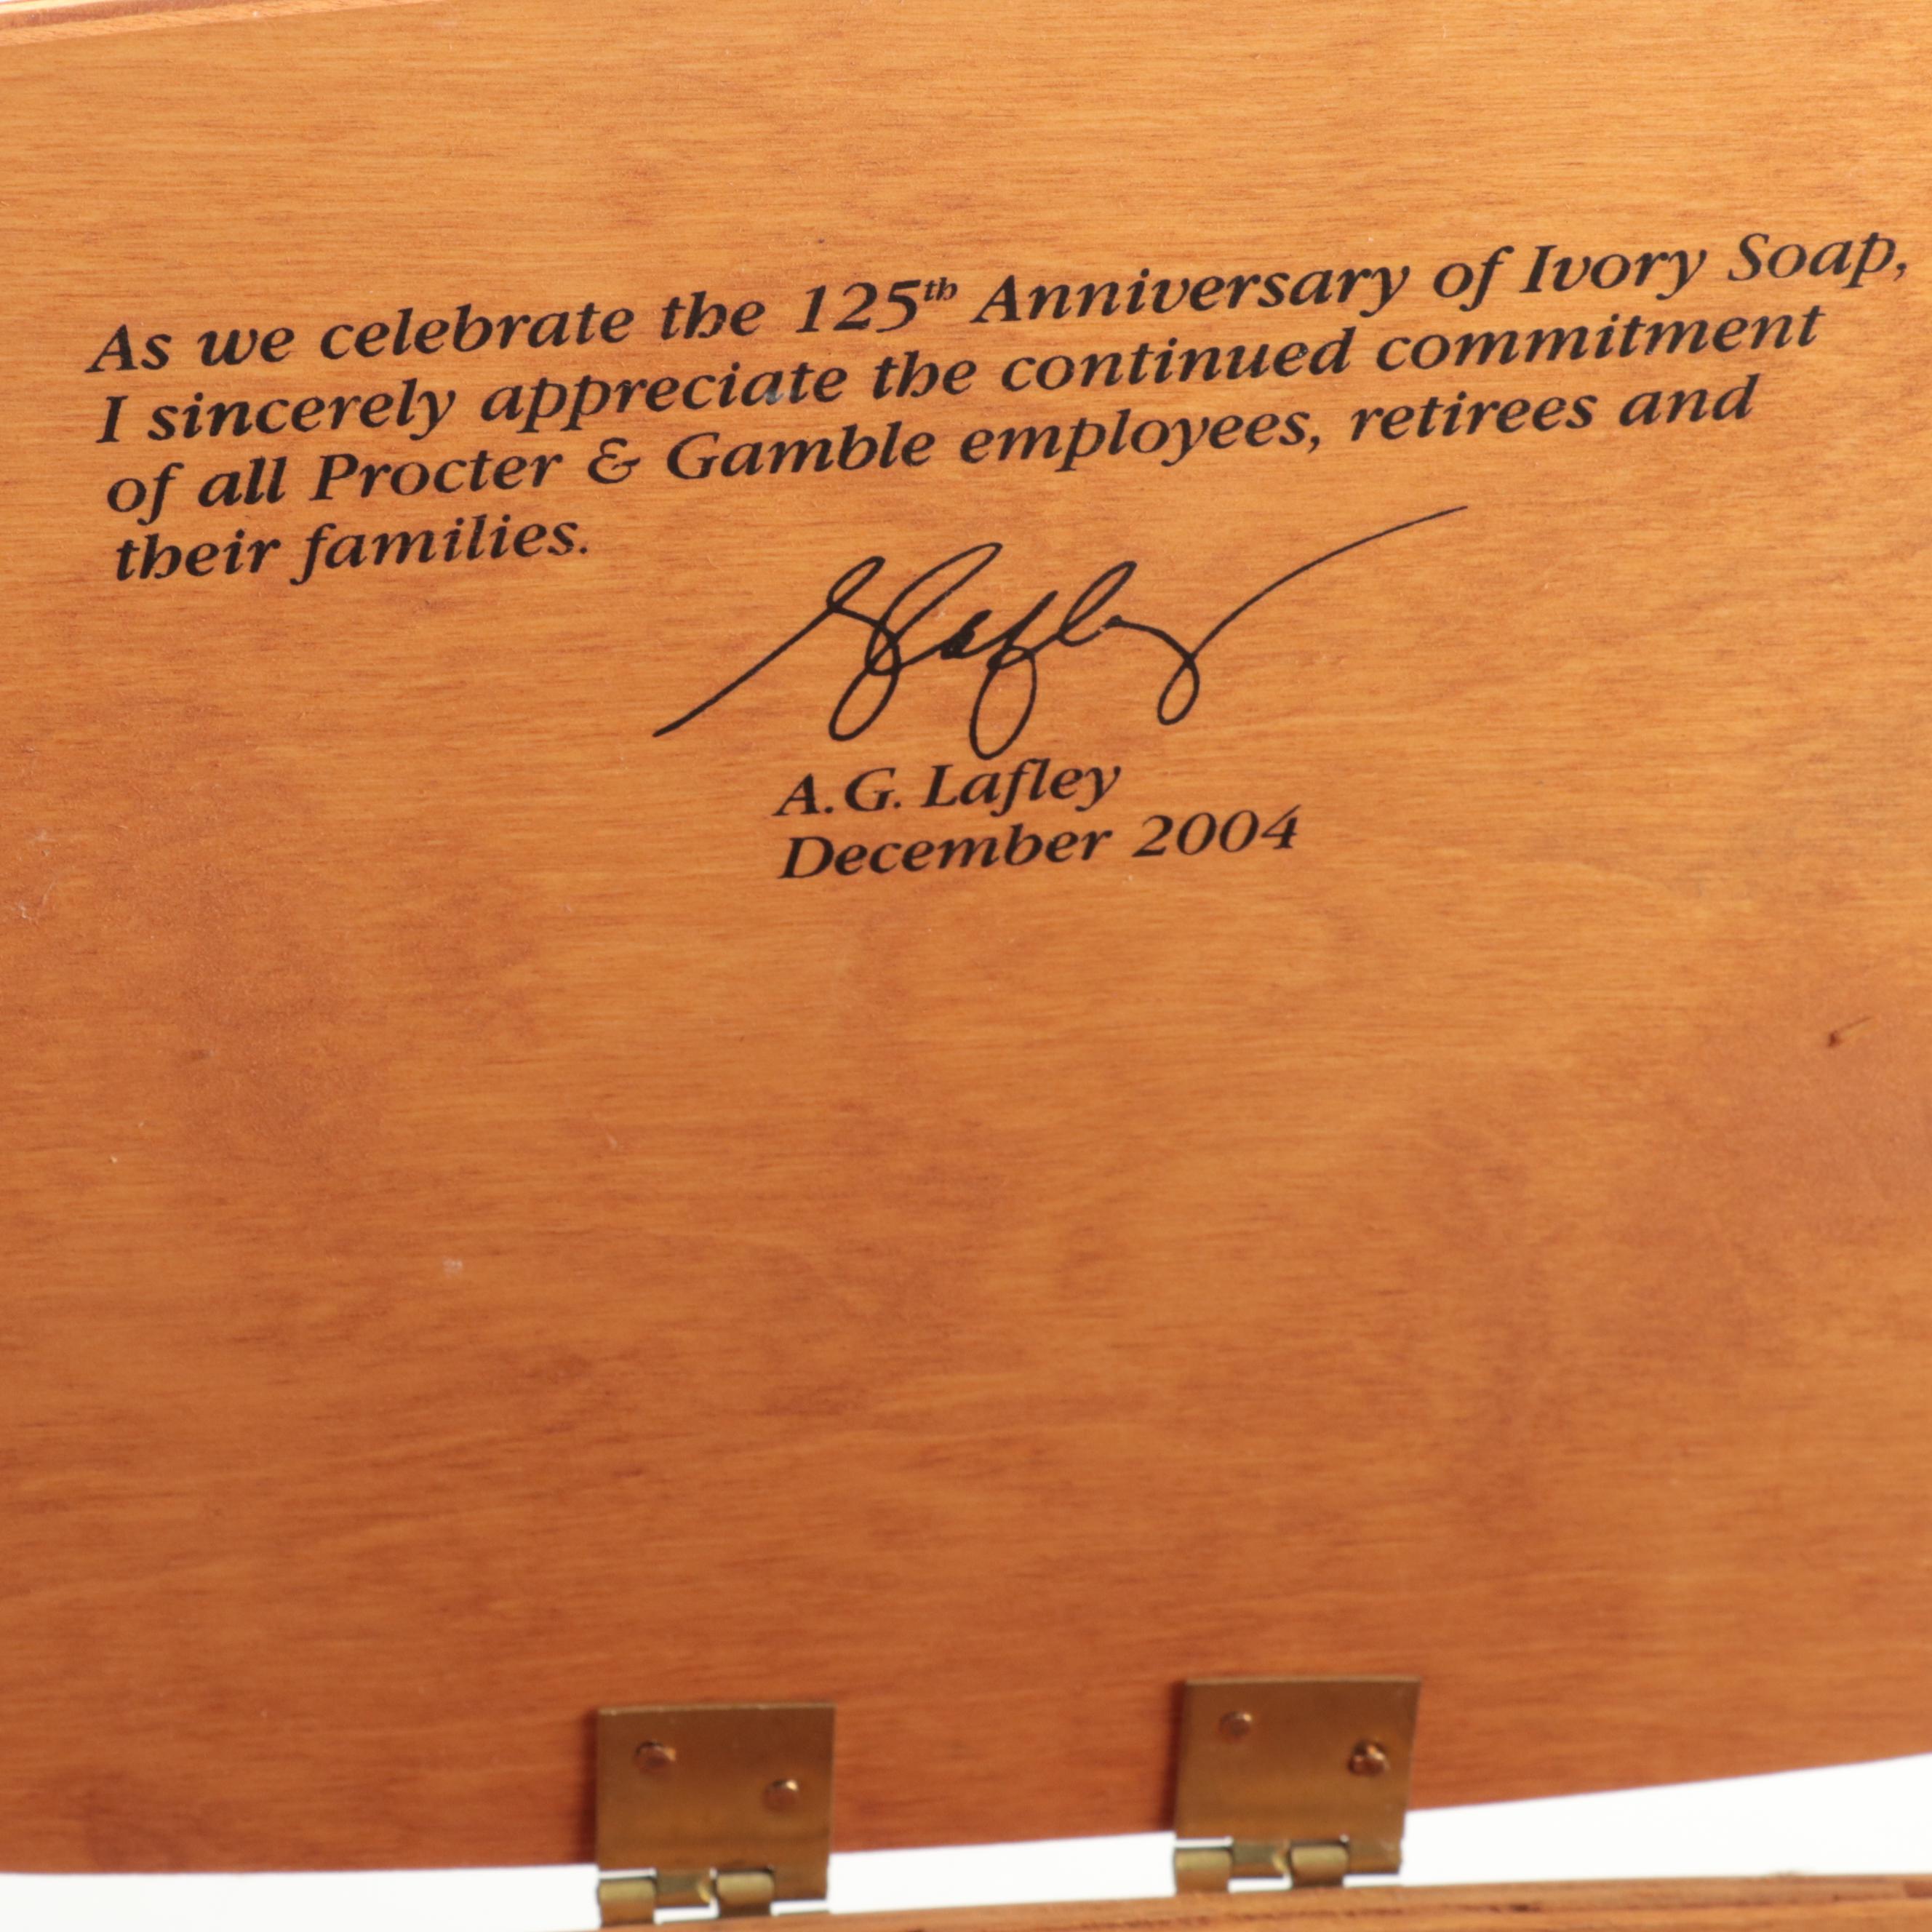 As we celebrate the 125th Anniversary of Ivory Soap,
I sincerely appreciate the continued commitment
of all Procter & Gamble employees, retirees and
their families.
A.G. Lafley
December 2004